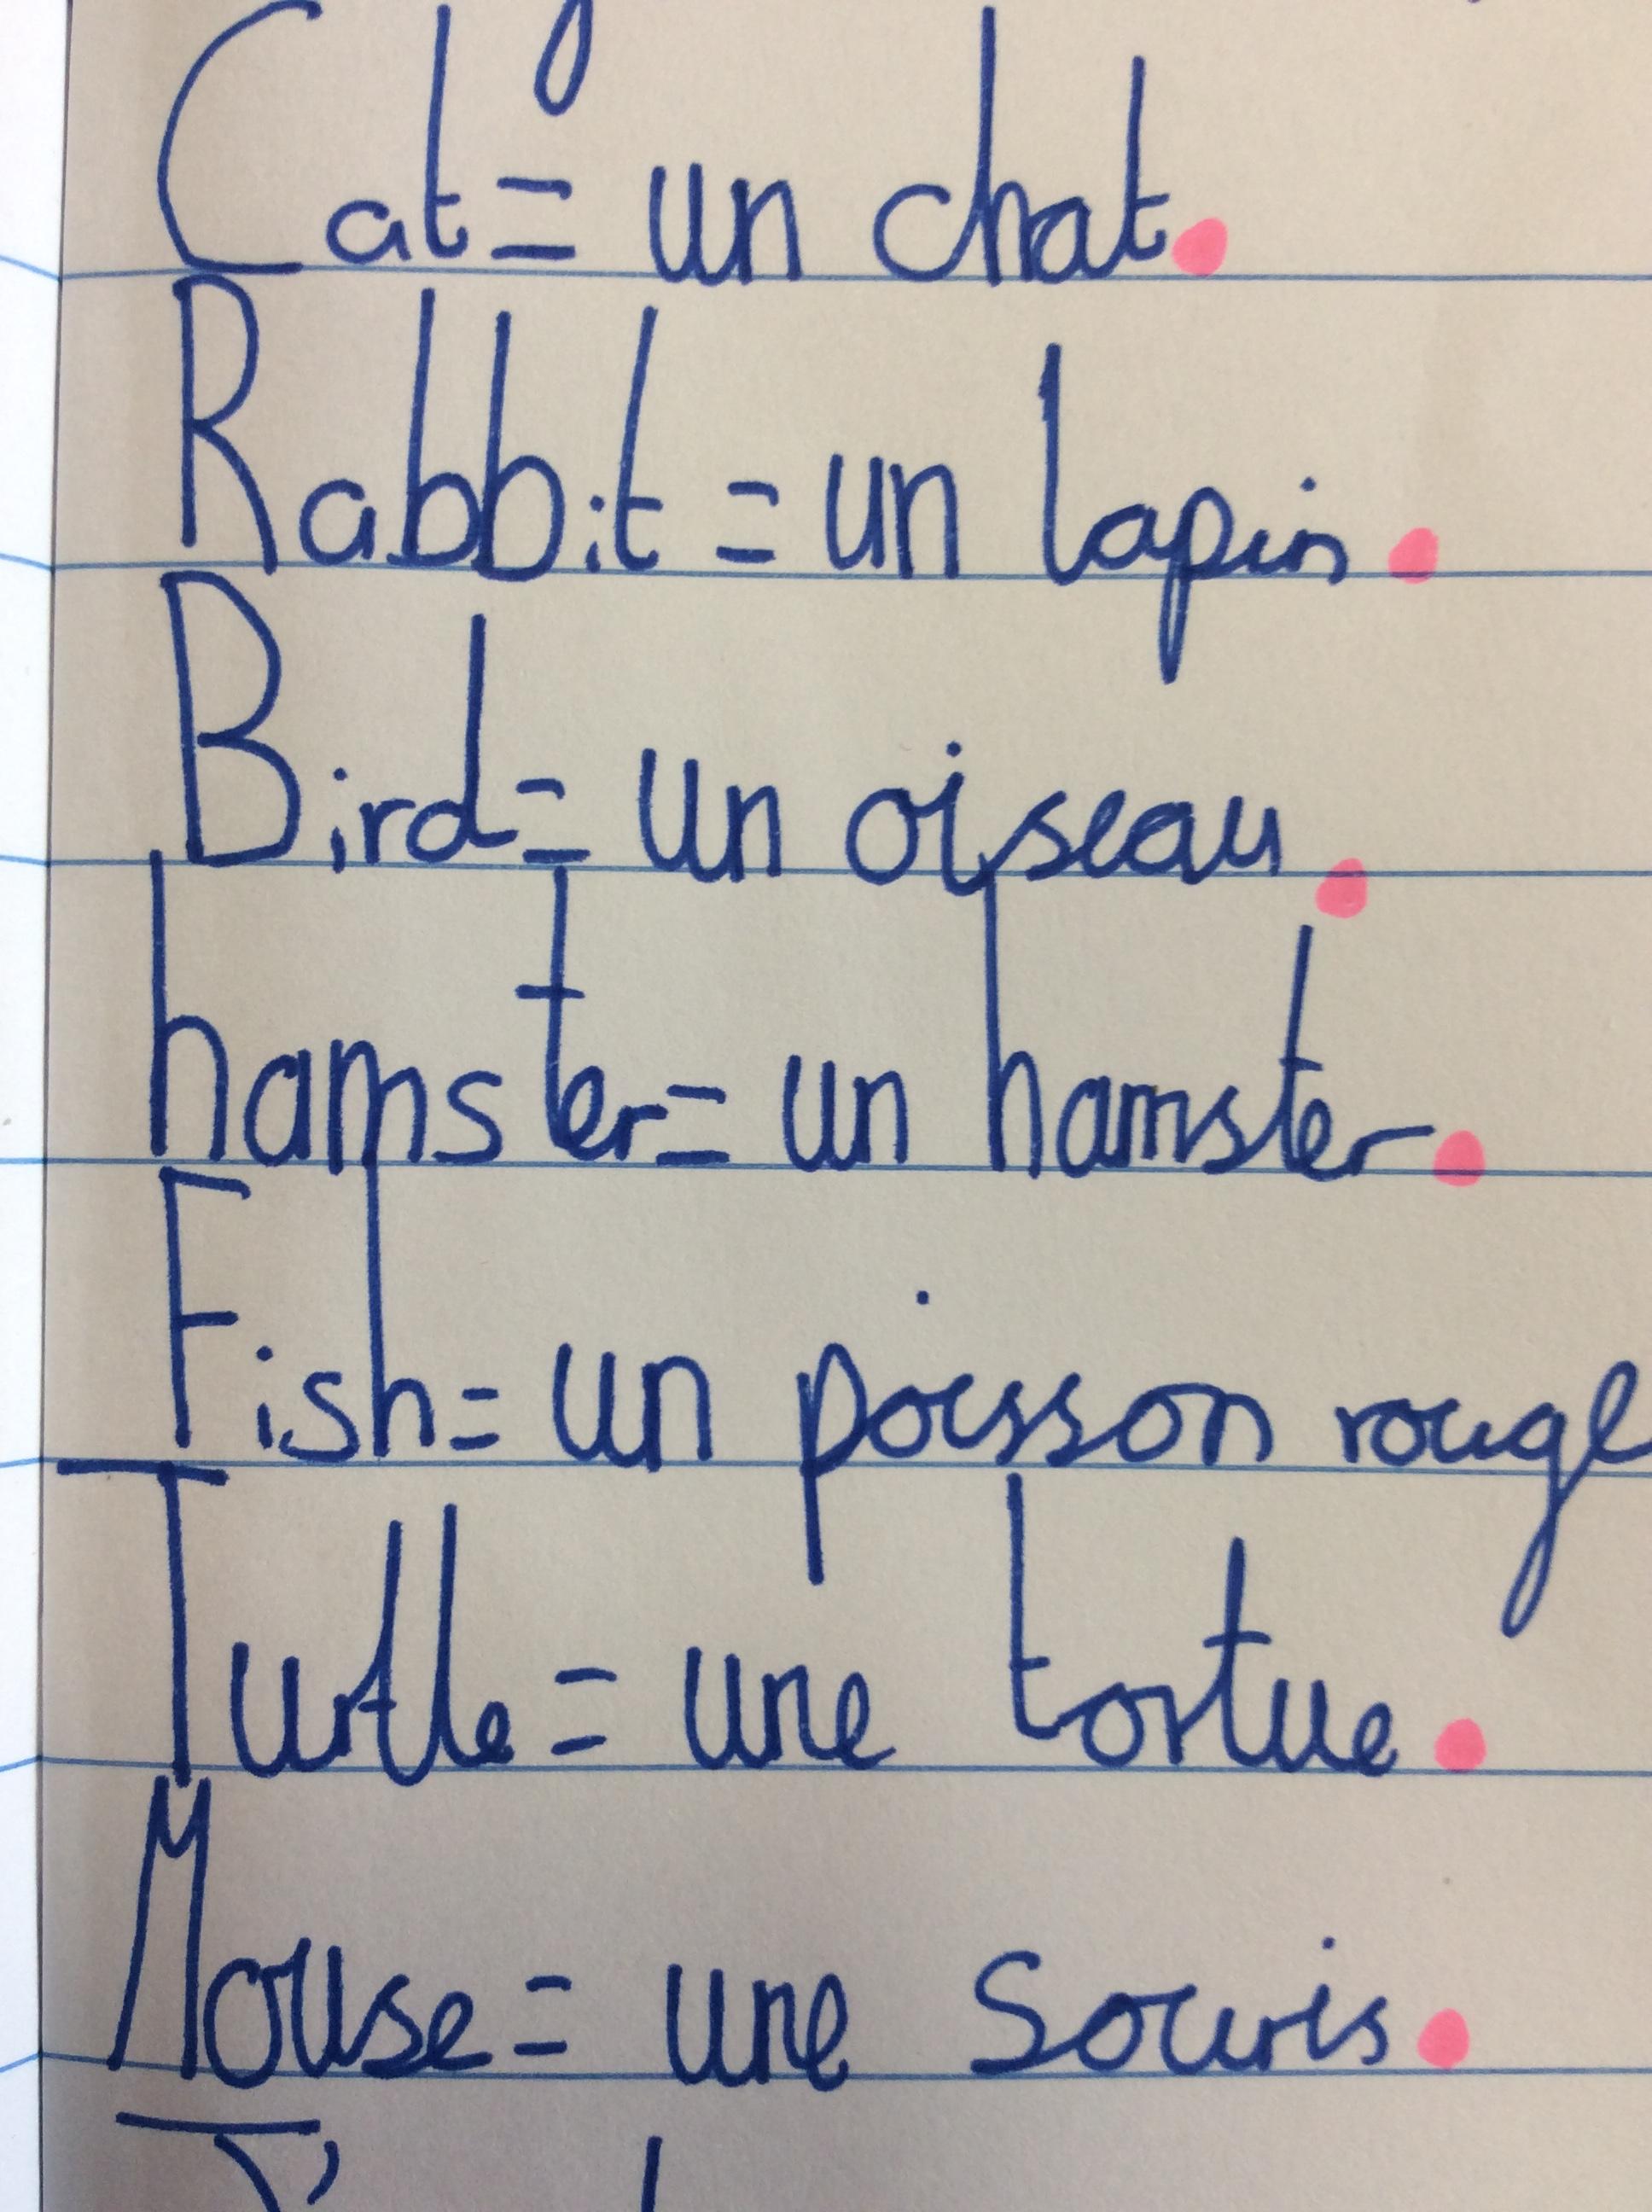 Cat = un chat.
Rabbit = un lapin.
Bird = un oiseau.
hamster = un hamster.
Fish = un poisson rouge
Turtle = une tortue.
Mouse = une souris.